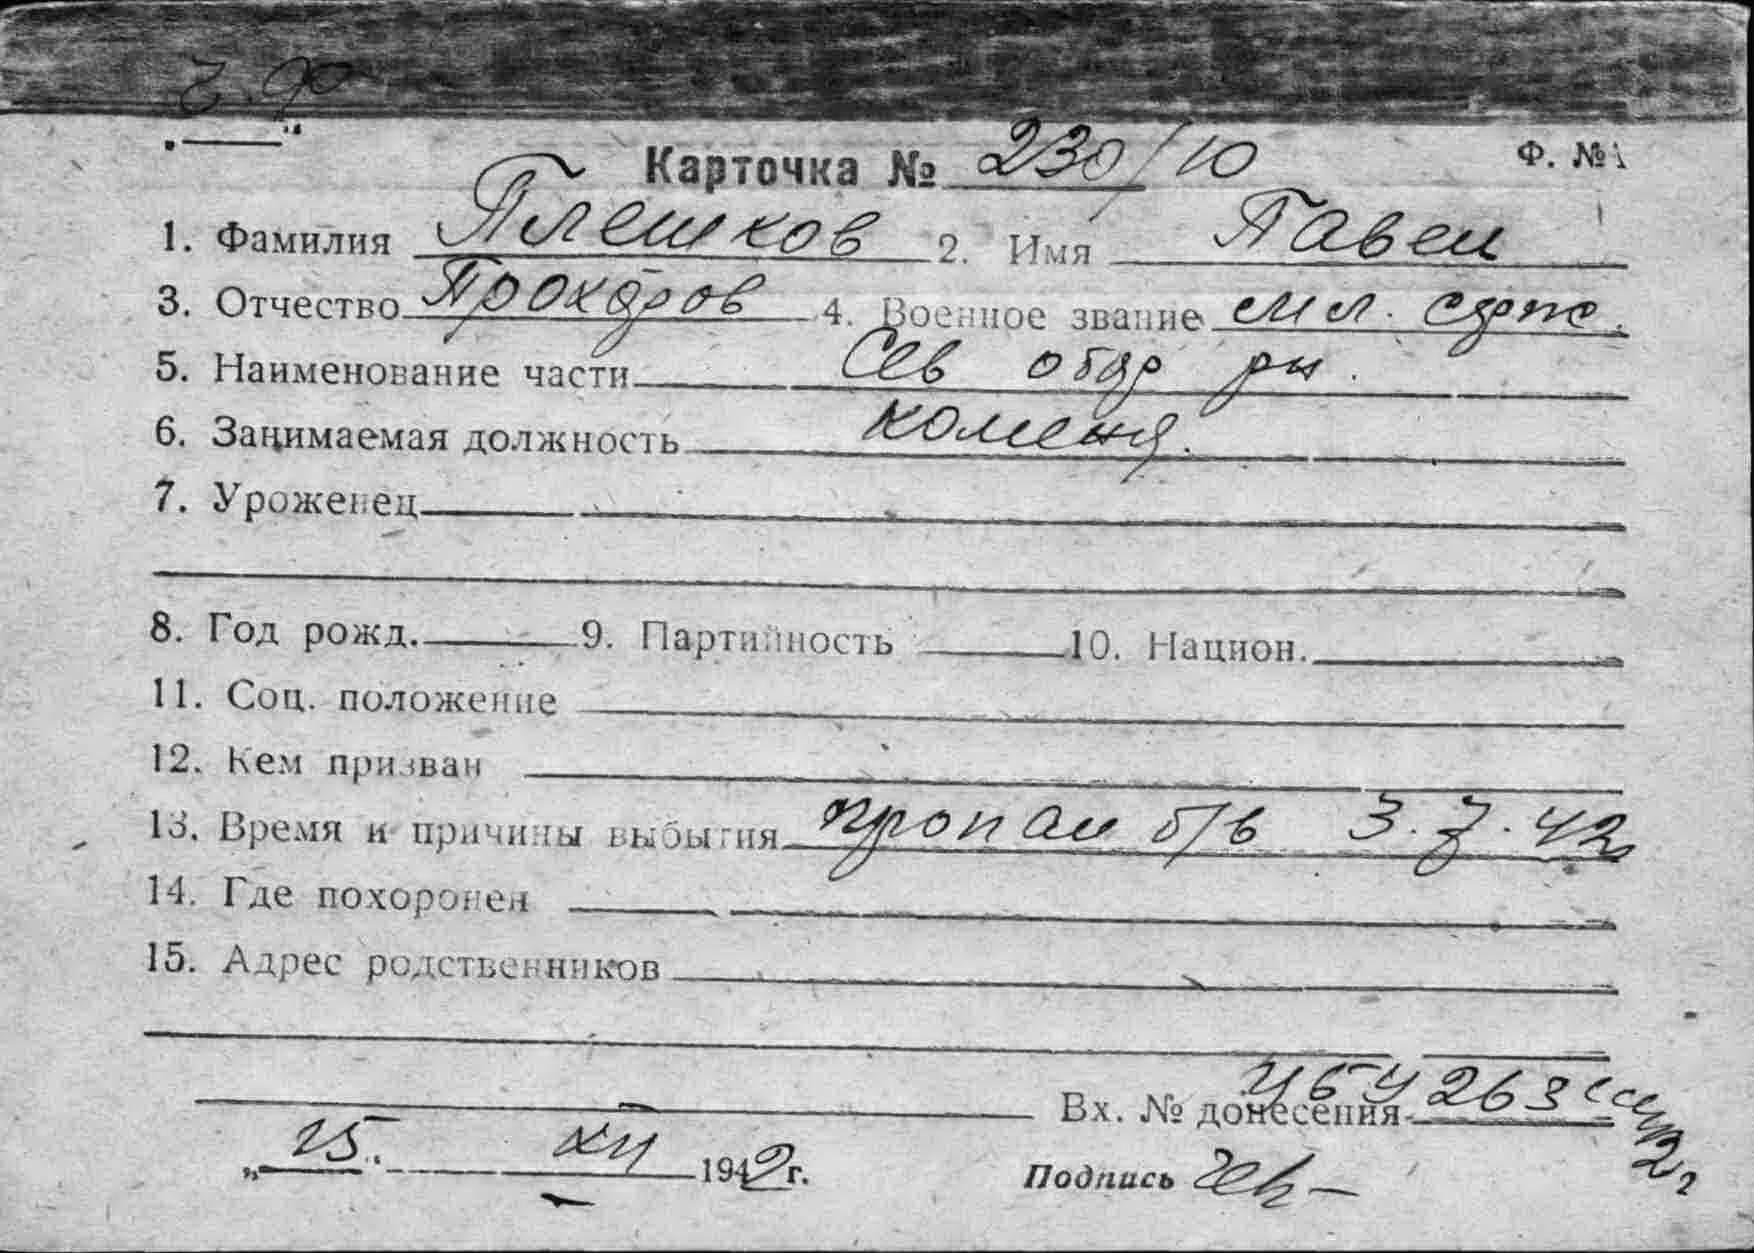 Карточка № 230/10 Ф. №1
1. Фамилия Плешков 2. Имя Павел
3. Отчество Прохоров 4. Военное звание мл. серж.
5. Наименование части Сев обор рн.
6. Занимаемая должность коменд.
7. Уроженец
8. Год рожд. 9. Партийность 10. Национ.
11. Соц. положение
12. Кем призван
13. Время и причины выбытия пропал б/в 3.7.42
14. Где похоронен
15. Адрес родственников
Вх. № донесения
„25. XII 1942г.
Подпись